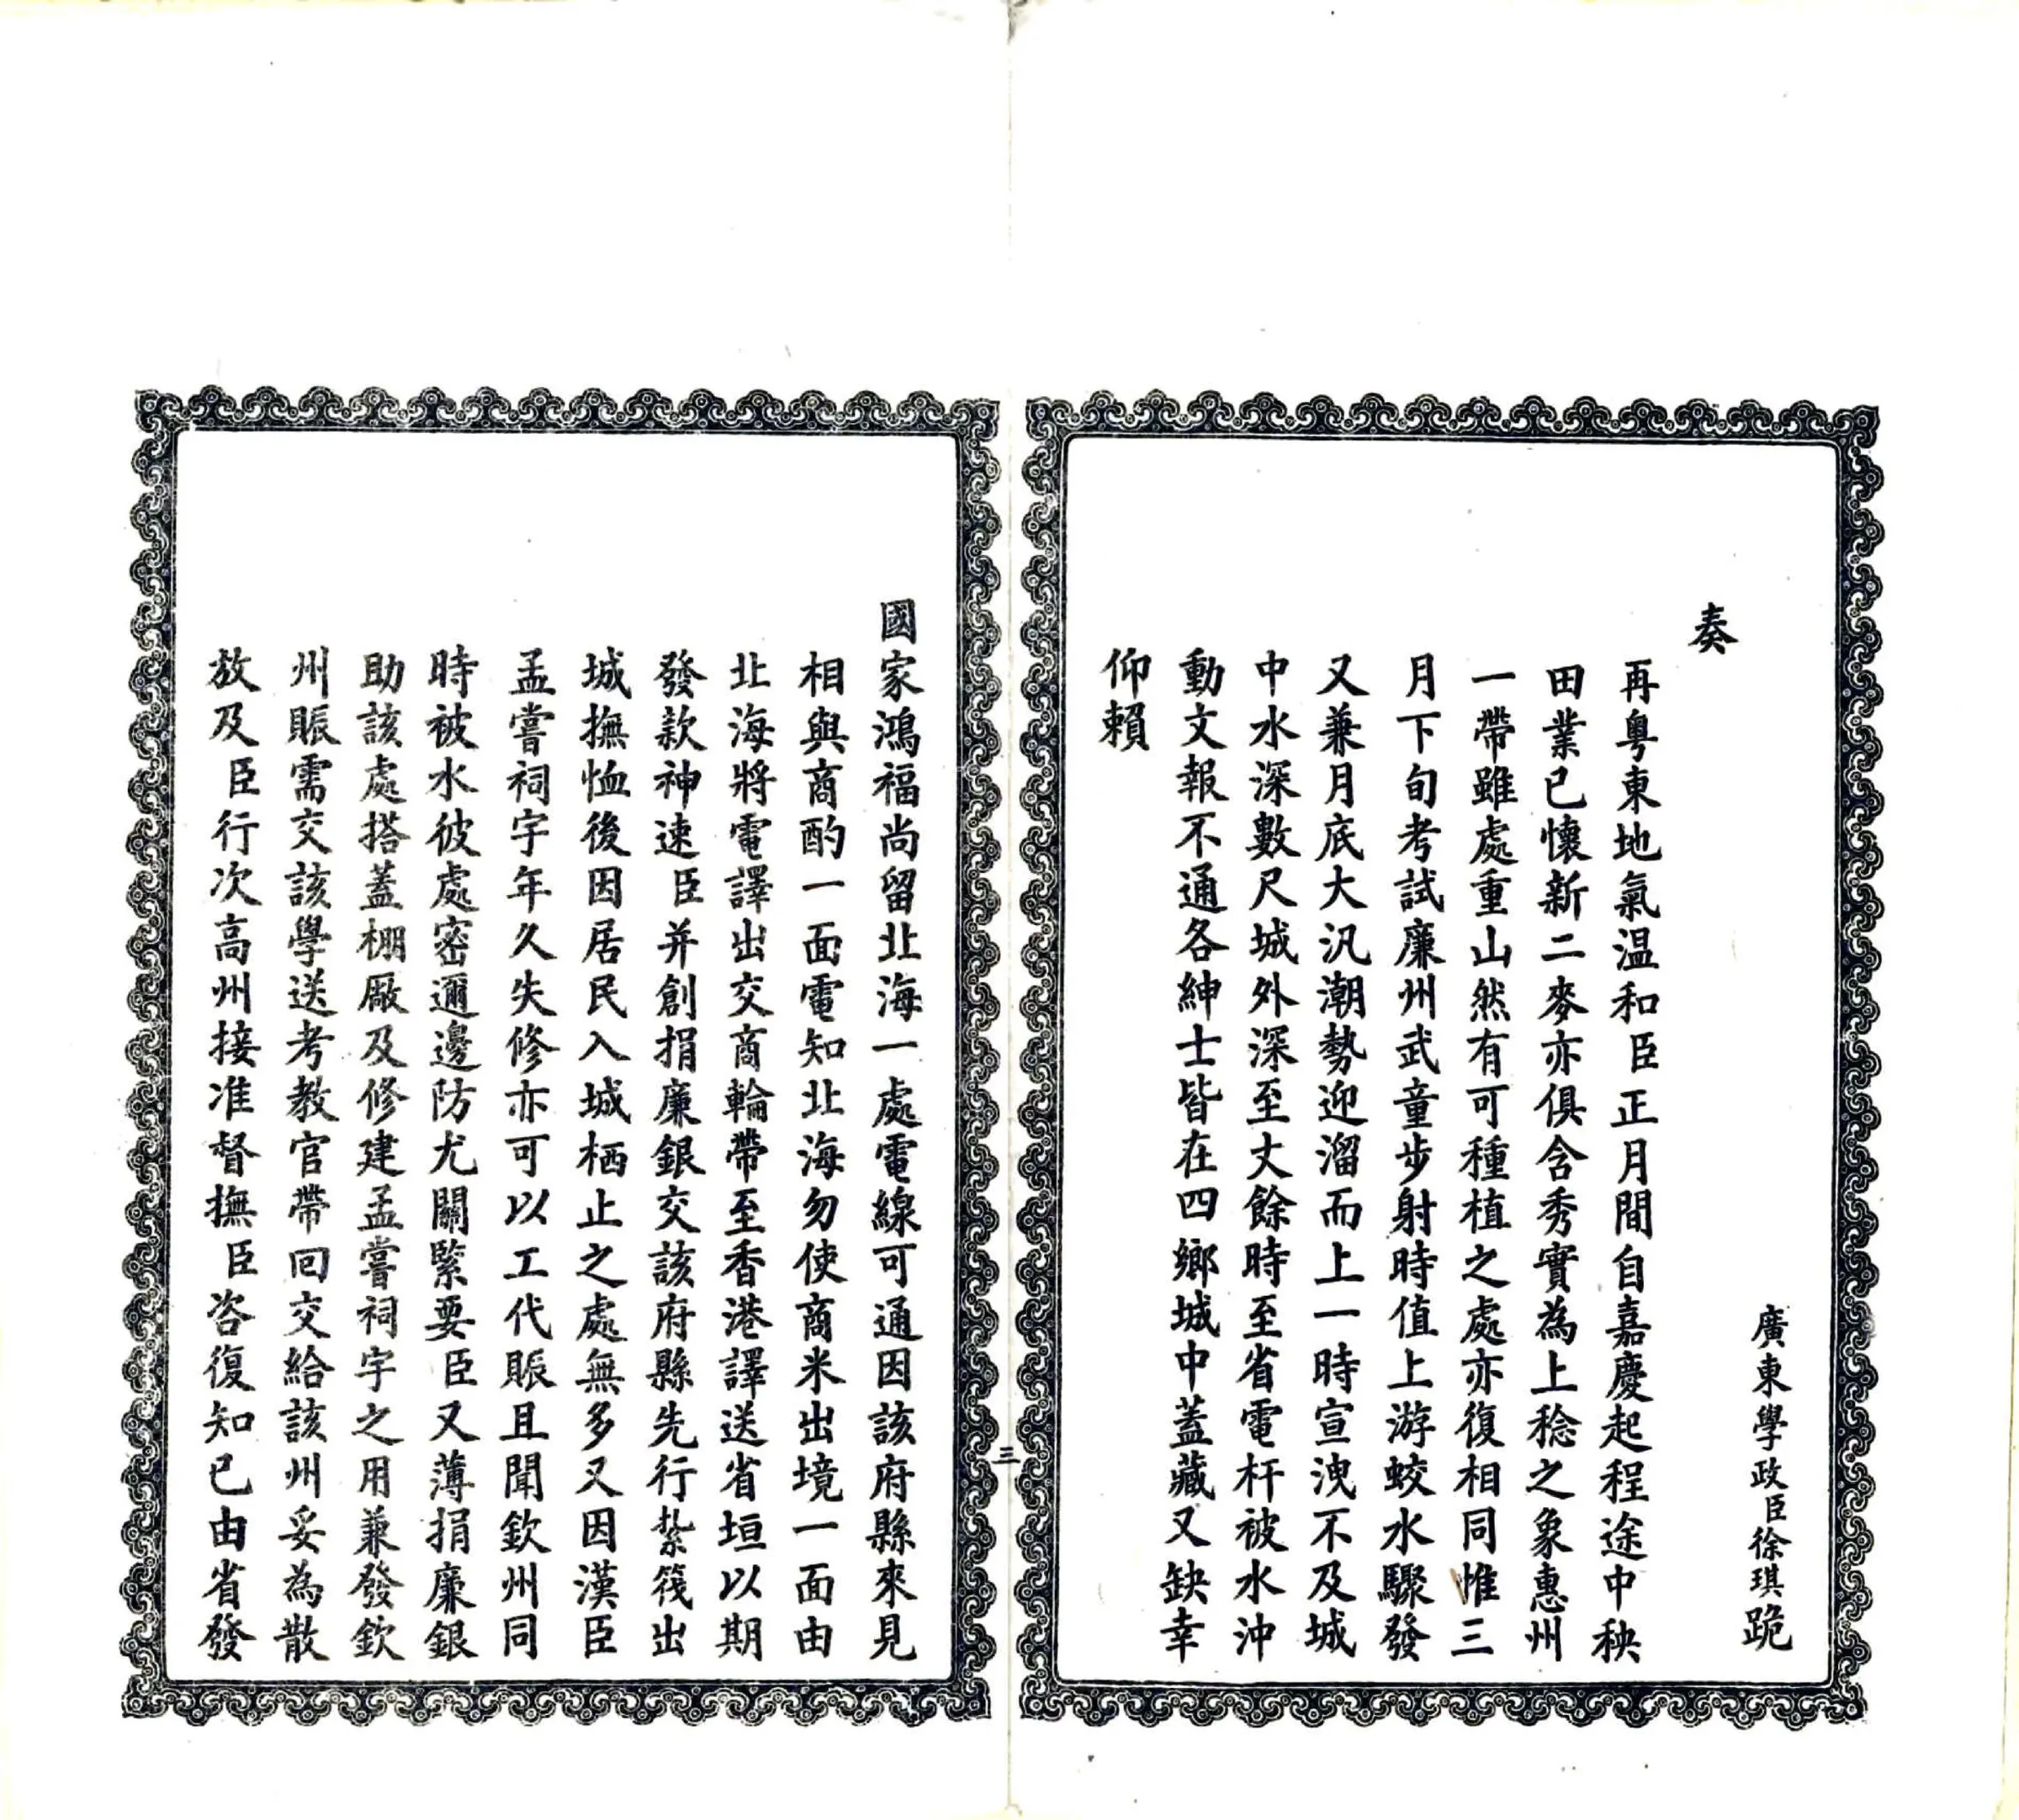 廣東學政臣徐琪跪
奏
再粵東地氣温和臣正月間自嘉慶起程途中秧
田業已懷新二麥亦俱含秀實為上稔之象惠州
一帶雖處重山然有可種植之處亦復相同惟三
月下旬考試廉州武童步射時值上游蛟水驟發
又兼月底大汛潮勢迎溜而上一時宣洩不及城
中水深數尺城外深至丈餘時至省電杆被水沖
動文報不通各紳士皆在四鄉城中蓋藏又缺幸
仰賴
國家鴻福尚留北海一處電線可通因該府縣來見
相與商酌一面電知北海勿使商米出境一面由
北海將電譯出交商輪帶至香港譯送省垣以期
發款神速臣并創捐廉銀交該府縣先行紮筏出
城撫恤後因居民入城栖止之處無多又因漢臣
孟嘗祠宇年久失修亦可以工代賑且聞欽州同
時被水彼處密邇邊防尤關緊要臣又薄捐廉銀
助該處搭蓋棚厰及修建孟嘗祠宇之用兼發欽
州賑需交該學送考教官帶回交給該州妥為散
放及臣行次高州接准督撫臣咨復知已由省發
三